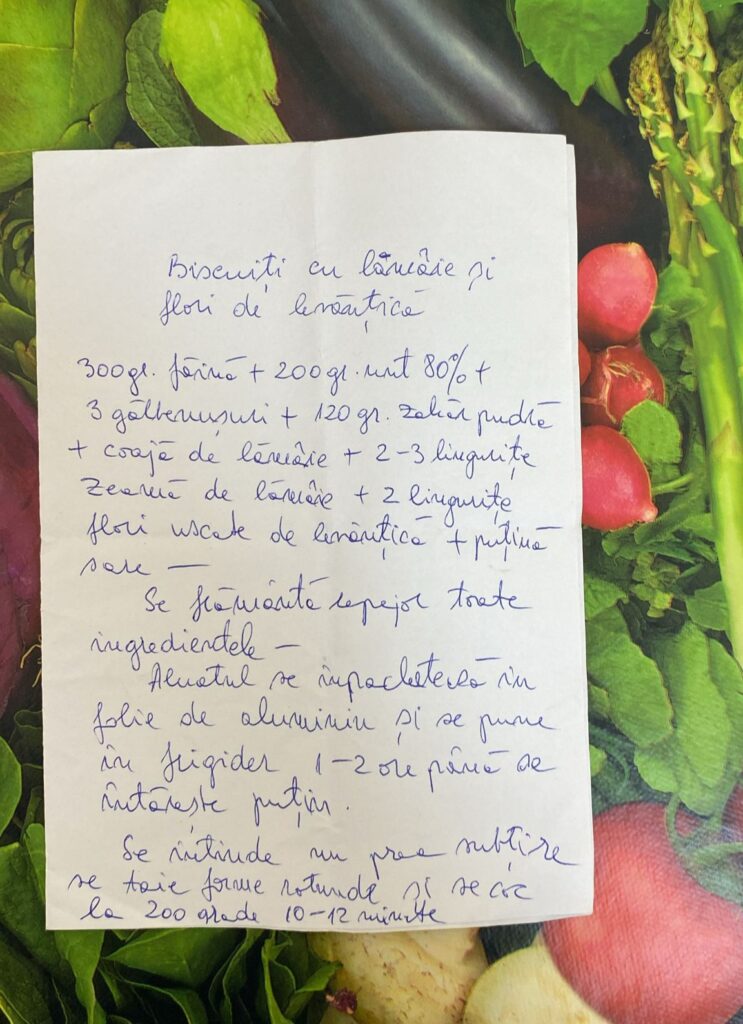 Biscuiți cu lămâie și
flori de levănțică
300 gr. făină + 200 gr. unt 80% +
3 gălbenușuri + 120 gr. zahăr pudră
+ coajă de lămâie + 2-3 lingurițe
zeamă de lămâie + 2 lingurițe
flori uscate de levănțică + puțină
sare —
Se frământă repejor toate
ingredientele —
Aluatul se împachetează în
folie de aluminiu și se pune
în frigider 1-2 ore până se
întărește puțin.
Se întinde nu prea subțire
se taie forme rotunde și se coc
la 200 grade 10-12 minute